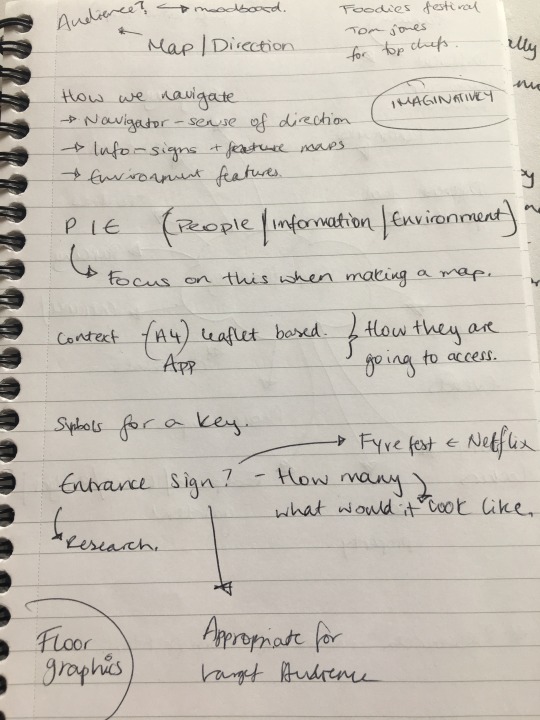 Audience? ↔ moodboard.
Foodies festival
Tom Jones
for top chefs.
Map | Direction
ally
How we navigate
→ Navigator - sense of direction
IMAGINATIVELY
→ Info - signs + feature maps
→ Environment features.
PIE (People | Information | Environment)
Focus on this when making a map.
Context - (A4) leaflet based. } How they are
App
going to access.
Symbols for a key.
→ Fyre fest ← Netflix
Entrance sign? - How many
what would it look like.
Research.
Floor
graphics
Appropriate for
target Audience